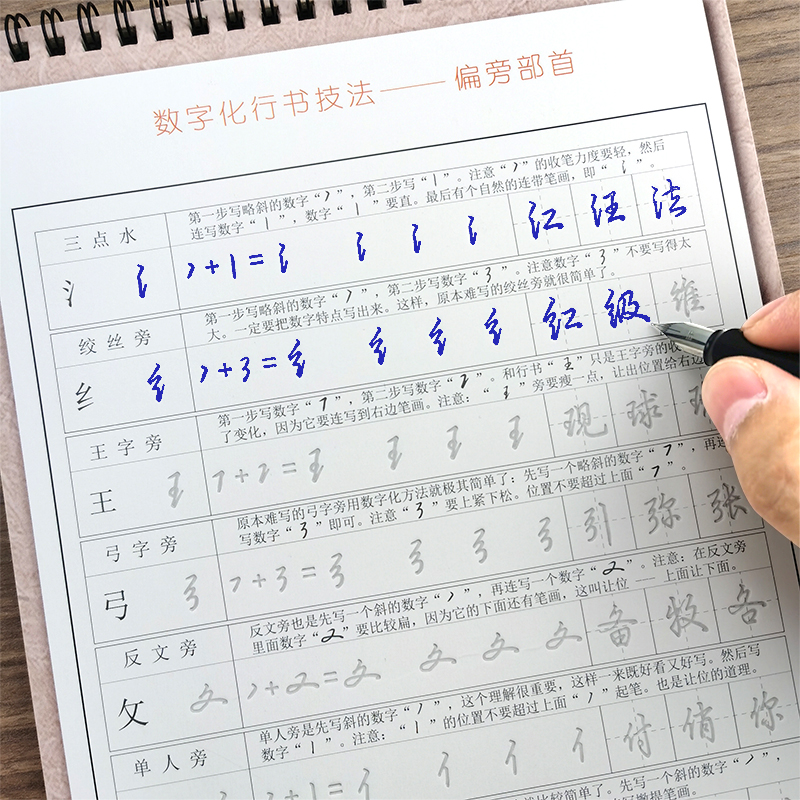 数字化行书技法——偏旁部首
三点水
第一步写略斜的数字“7”，第二步写“1”。注意“7”的收笔力度要轻，然后
连写数字“1”，数字“1”要直。最后有个自然的连带笔画，即“氵”。
氵 氵 7+1=氵 氵 氵 氵 江 汪 法
绞丝旁
第一步写略斜的数字“7”，第二步写数字“3”。注意数字“3”不要写得太
大。一定要把数字特点写出来。这样，原本难写的绞丝旁就很简单了。
纟 纟 7+3=纟 纟 纟 纟 红 级 维
王字旁
第一步写数字“7”，第二步写数字“2”。和行书“王”只是王字旁的收
了变化，因为它要连写到右边笔画。注意：“王”旁要瘦一点，让出位置给右边
王 王 7+2=王 王 王 王 现 球
弓字旁
原本难写的弓字旁用数字化方法就极其简单了：先写一个略斜的数字“7”，再连
写数字“3”即可。注意“3”要上紧下松。位置不要超过上面“7”。
弓 弓 7+3=弓 弓 弓 弓 引 弥 张
反文旁
反文旁也是先写一个斜的数字“7”，再连写一个数字“2”。注意：在反文旁
里面数字“2”要比较扁，因为它的下面还有笔画，这叫让位——上面让下面。
攵 攵 7+2=攵 攵 攵 攵 备 牧 各
单人旁
单人旁是先写斜的数字“7”，这个理解很重要，这样一来既好看又好写。然后写
数字“1”。注意：“1”的位置不要超过上面“7”起笔。也是让位的道理。
7+1=亻 亻 亻 亻 付 俏 你
比较简单了。先写一个斜的数字“7”，